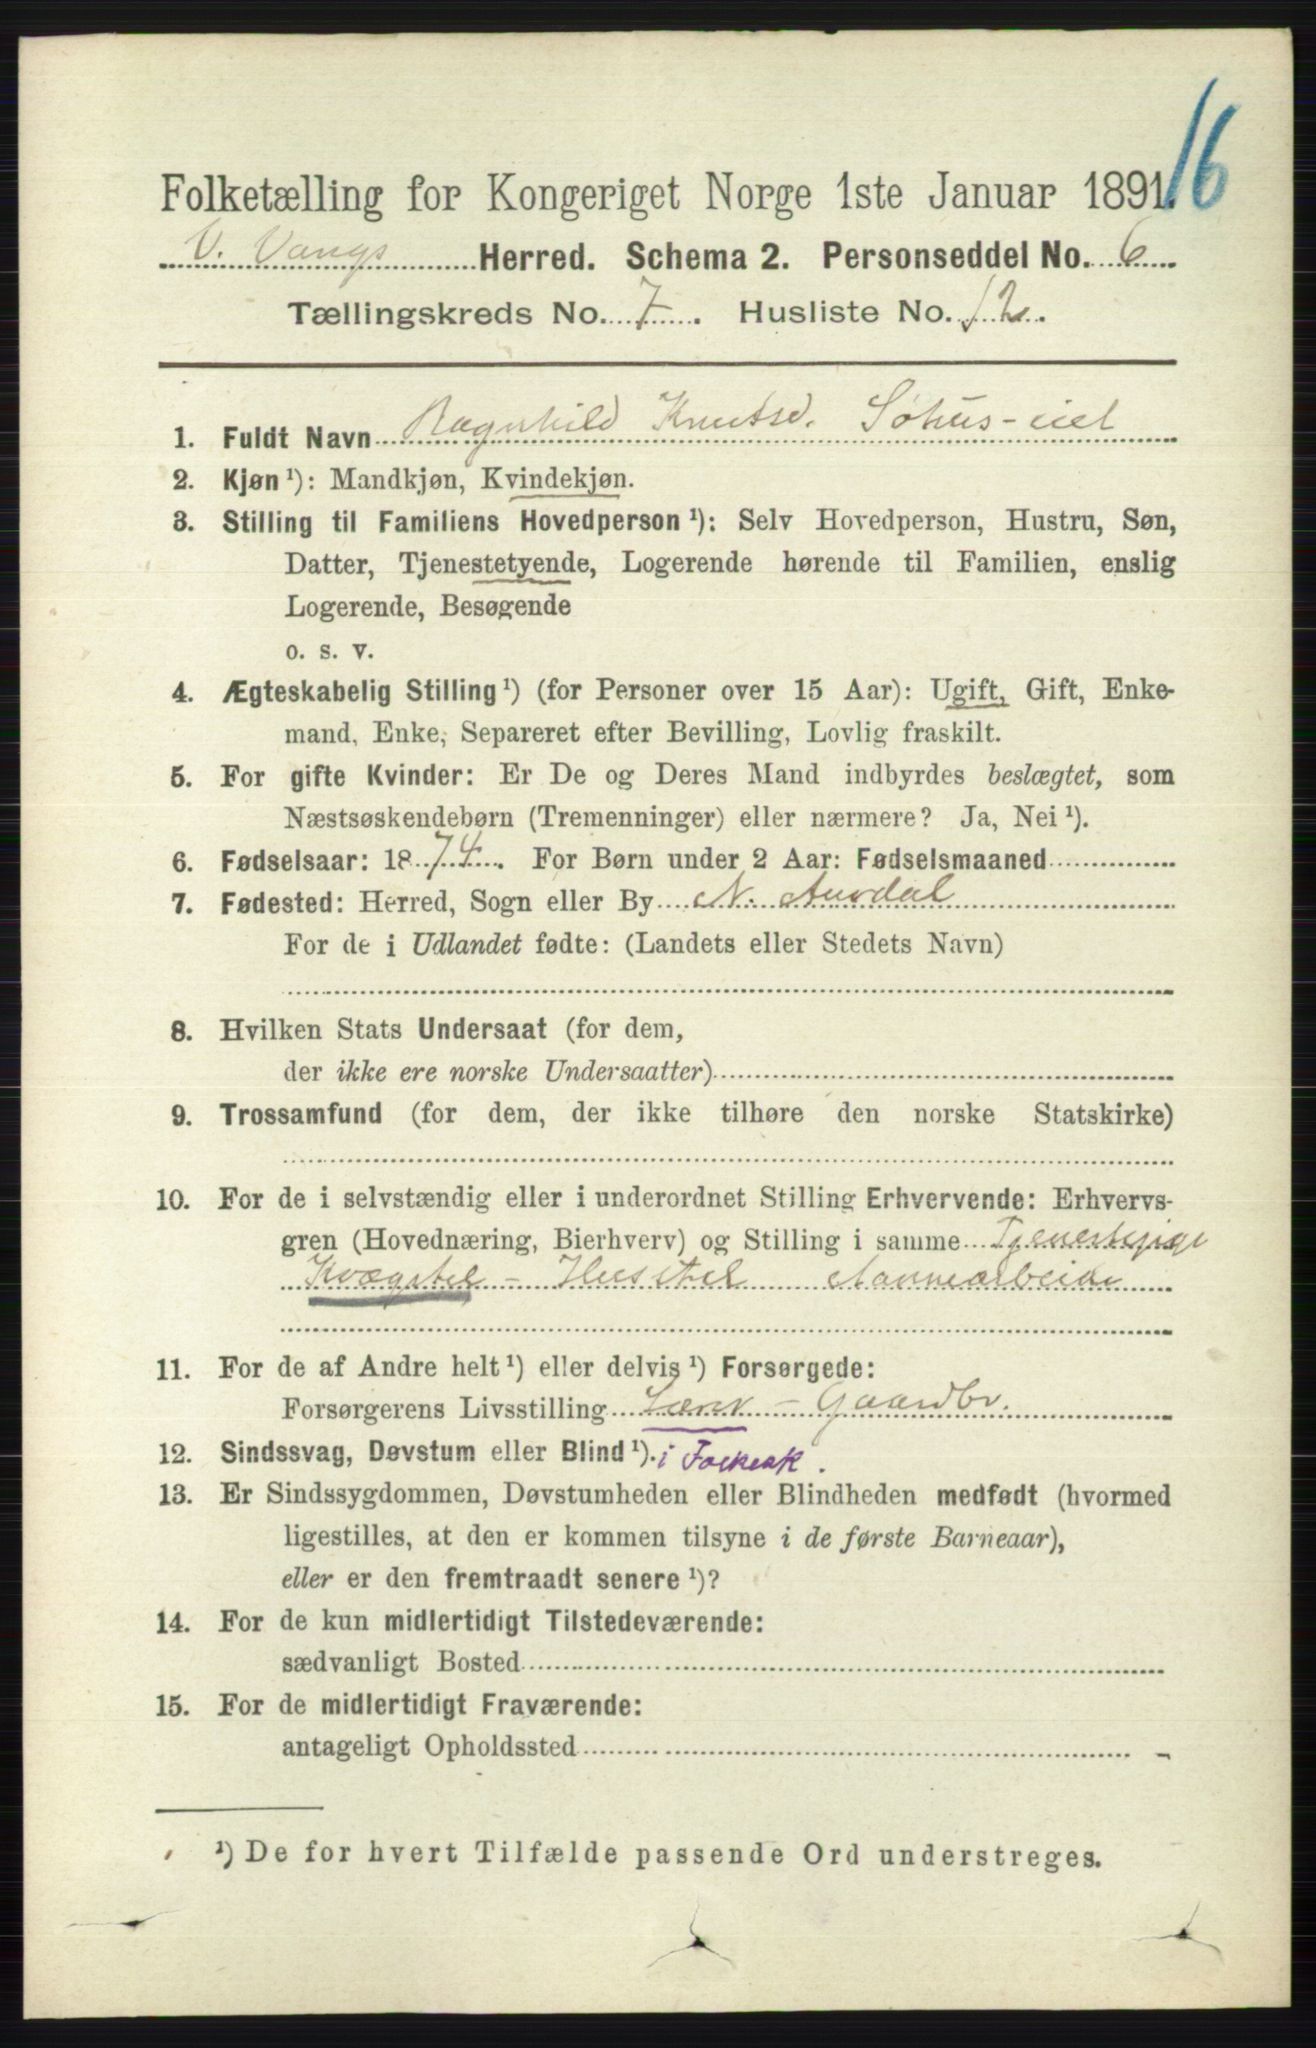 16
Folketælling for Kongeriget Norge 1ste Januar 1891.
V. Vangs Herred. Schema 2. Personseddel No. 6
Tællingskreds No. 7. Husliste No. 12.
1. Fuldt Navn Ragnhild Knutsd. Søhus-eiet
2. Kjøn ¹): Mandkjøn, Kvindekjøn.
3. Stilling til Familiens Hovedperson ¹): Selv Hovedperson, Hustru, Søn,
Datter, Tjenestetyende, Logerende hørende til Familien, enslig
Logerende, Besøgende
o. s. v.
4. Ægteskabelig Stilling ¹) (for Personer over 15 Aar): Ugift, Gift, Enke-
mand, Enke, Separeret efter Bevilling, Lovlig fraskilt.
5. For gifte Kvinder: Er De og Deres Mand indbyrdes beslægtet, som
Næstsøskendebørn (Tremenninger) eller nærmere? Ja, Nei ¹).
6. Fødselsaar: 1874. For Børn under 2 Aar: Fødselsmaaned
7. Fødested: Herred, Sogn eller By N. Aurdal
For de i Udlandet fødte: (Landets eller Stedets Navn)
8. Hvilken Stats Undersaat (for dem,
der ikke ere norske Undersaatter)
9. Trossamfund (for dem, der ikke tilhøre den norske Statskirke)
10. For de i selvstændig eller i underordnet Stilling Erhvervende: Erhvervs-
gren (Hovednæring, Bierhverv) og Stilling i samme Tjenestepige
Kvægstel - Husstel Aannearbeide
11. For de af Andre helt ¹) eller delvis ¹) Forsørgede:
Forsørgerens Livsstilling - Gaardbr.
12. Sindssvag, Døvstum eller Blind ¹). i
13. Er Sindssygdommen, Døvstumheden eller Blindheden medfødt (hvormed
ligestilles, at den er kommen tilsyne i de første Barneaar),
eller er den fremtraadt senere ¹)?
14. For de kun midlertidigt Tilstedeværende:
sædvanligt Bosted
15. For de midlertidigt Fraværende:
antageligt Opholdssted
¹) De for hvert Tilfælde passende Ord understreges.